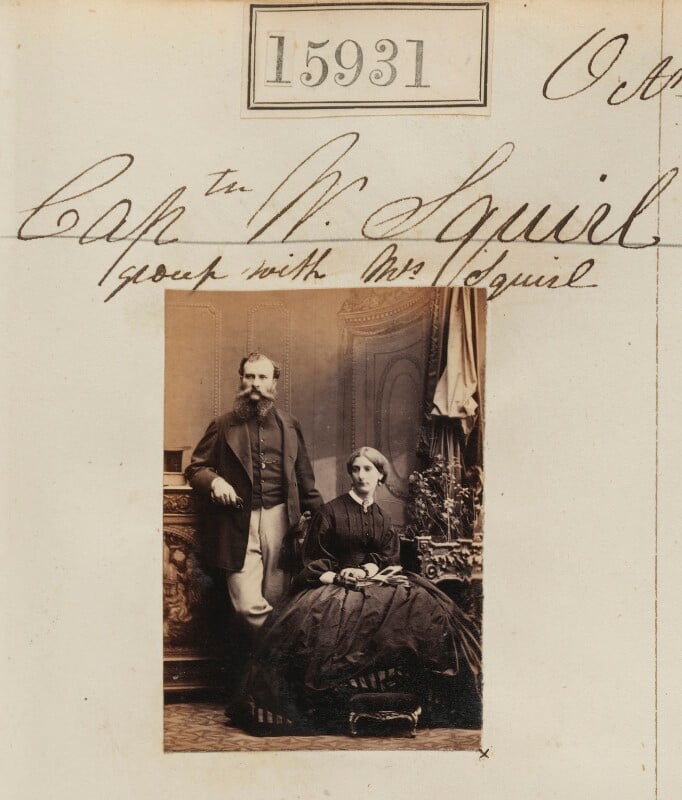 15931
Captn W. Squirl
group with Mrs Squirl